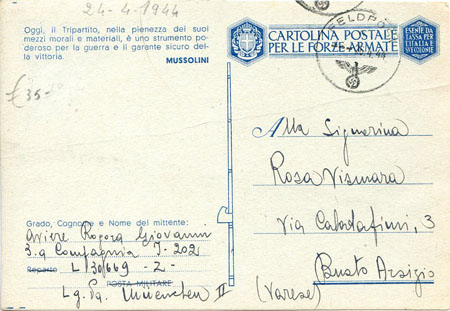 24-4-1944
Oggi, il Tripartito, nella pienezza dei suoi
mezzi morali e materiali, è uno strumento po-
deroso per la guerra e il garante sicuro del-
la vittoria.
MUSSOLINI
£ 35-
CARTOLINA POSTALE
PER LE FORZE ARMATE
ESENTE DA
TASSA PER
L'ITALIA E
FELDPOST
Alla Signorina
Rosa Vismara
Via Calatafimi, 3
Busto Arsizio
(Varese)
Grado, Cognome e Nome del mittente:
Aviere Rogora Giovanni
3.a Compagnia J-202
Reparto L 30669 -Z-
POSTA MILITARE
Lg. Pa. Muenchen II